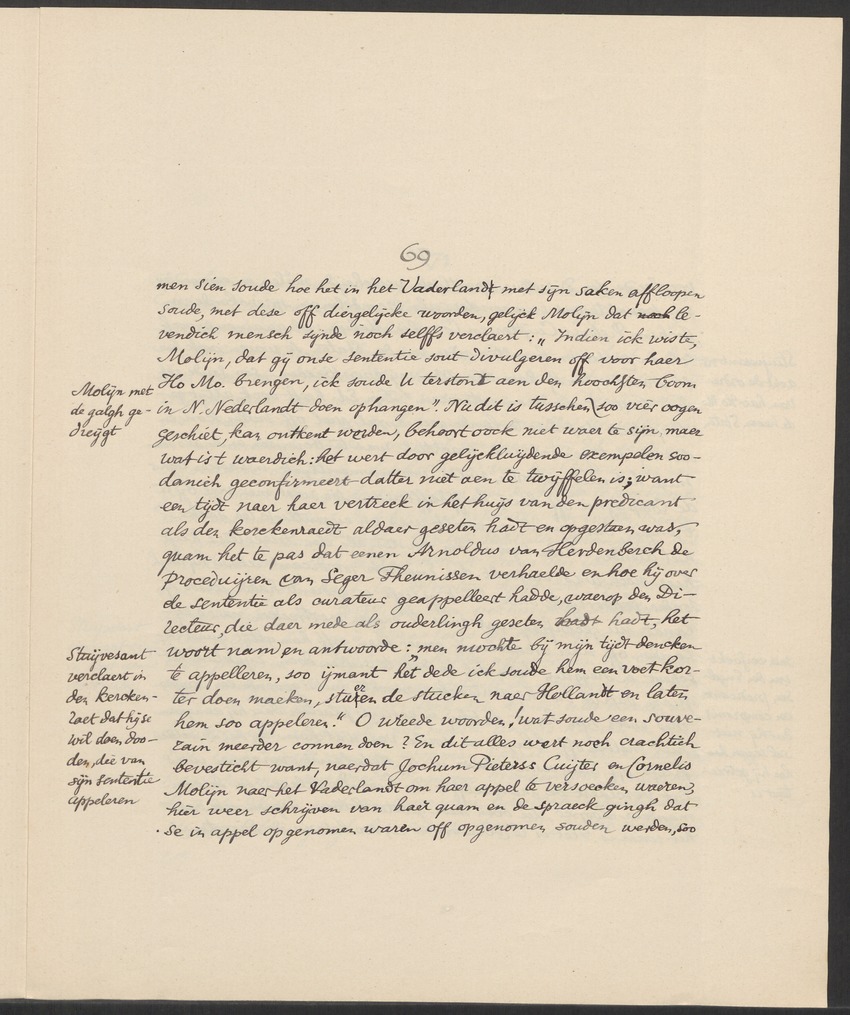 69
men sien soude hoe het in het Vaderlandt met sijn saken affloopen
soude, met dese off diergelijcke woorden, gelijck Molijn dat noch le-
vendich mensch sijnde noch selffs verclaert: „Indien ick wiste,
Molijn, dat gij onse sententie sout divulgeren off voor haer
Ho Mo. brengen, ick soude U terstont aen den hoochsten boom
in N. Nederlandt doen ophangen". Nu dit is tusschen soo vier oogen
geschiet, kan ontkent worden, behoort oock niet waer te sijn, maer
wat is t waerdich: het wert door gelijckluijdende exempelen soo-
danich geconfirmeert datter niet aen te twijffelen is; want
een tijdt naer haer vertreck in het huijs van den predicant
als den kerckenraedt aldaer geseten hadt en opgestaen was,
quam het te pas dat eenen Arnoldus van Herdenberch de
Proceduijren van Seger Theunissen verhaelde en hoe hij over
de sententie als curateur geappelleert hadde, waerop den Di-
recteur, die daer mede als ouderlingh geseten hadt hadt, het
woort nam en antwoorde: „men mochte bij mijn tijdt dencken
te appelleren, soo ijmant het dede ick soude hem een voet kor-
ter doen maeken, stueren de stucken naer Hollandt en laten
hem soo appeleren." O wreede woorden! wat soude een souve-
rain meerder connen doen? En dit alles wert noch crachtich
bevesticht want, naerdat Jochum Pieterss Cuijter en Cornelis
Molijn naer het Vaderlandt om haer appel te versoecken waeren,
hier weer schrijven van haer quam en de spraeck gingh dat
se in appel opgenomen waren off opgenomen souden werden, soo
Molijn met
de galgh ge-
dreijgt
Stuijvesant
verclaert in
den kercken-
raet dat hij se
wil doen doo-
den, die van
sijn sententie
appeleren